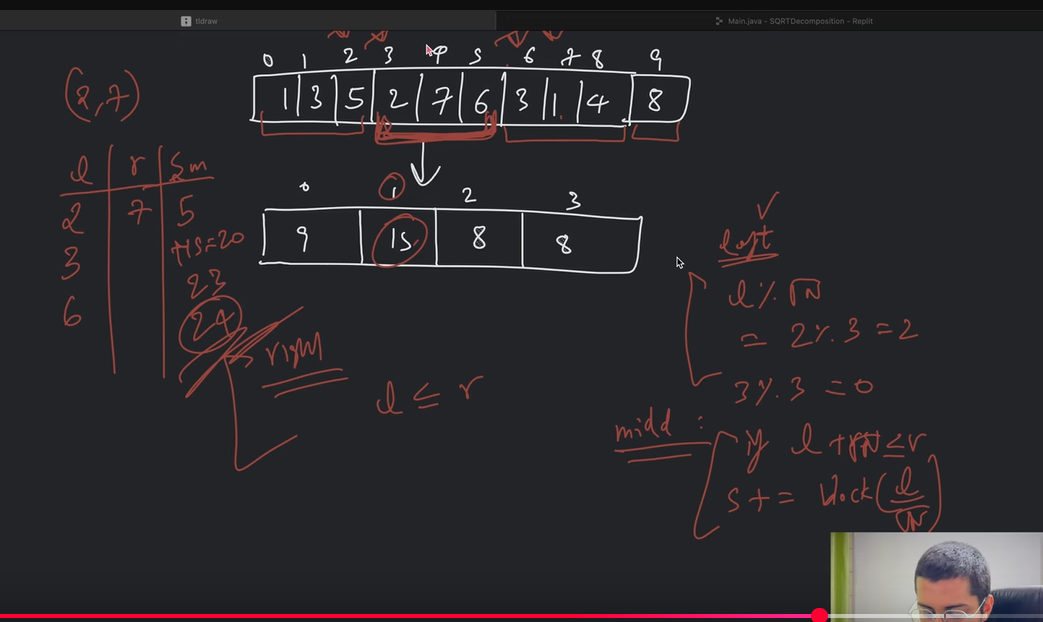 tldraw
Main.java - SQRTDecomposition - Replit
0 1 2 3 4 5 6 7 8 9
1 3 5 2 7 6 3 1 4 8
(2,7)
l r Sum
2 7 5
+15=20
3 23
6 24
right
l ≤ r
0 1 2 3
9 15 8 8
left
l % √N
= 2 % 3 = 2
3 % 3 = 0
midd :
if l + √N ≤ r
s += block(l/√N)